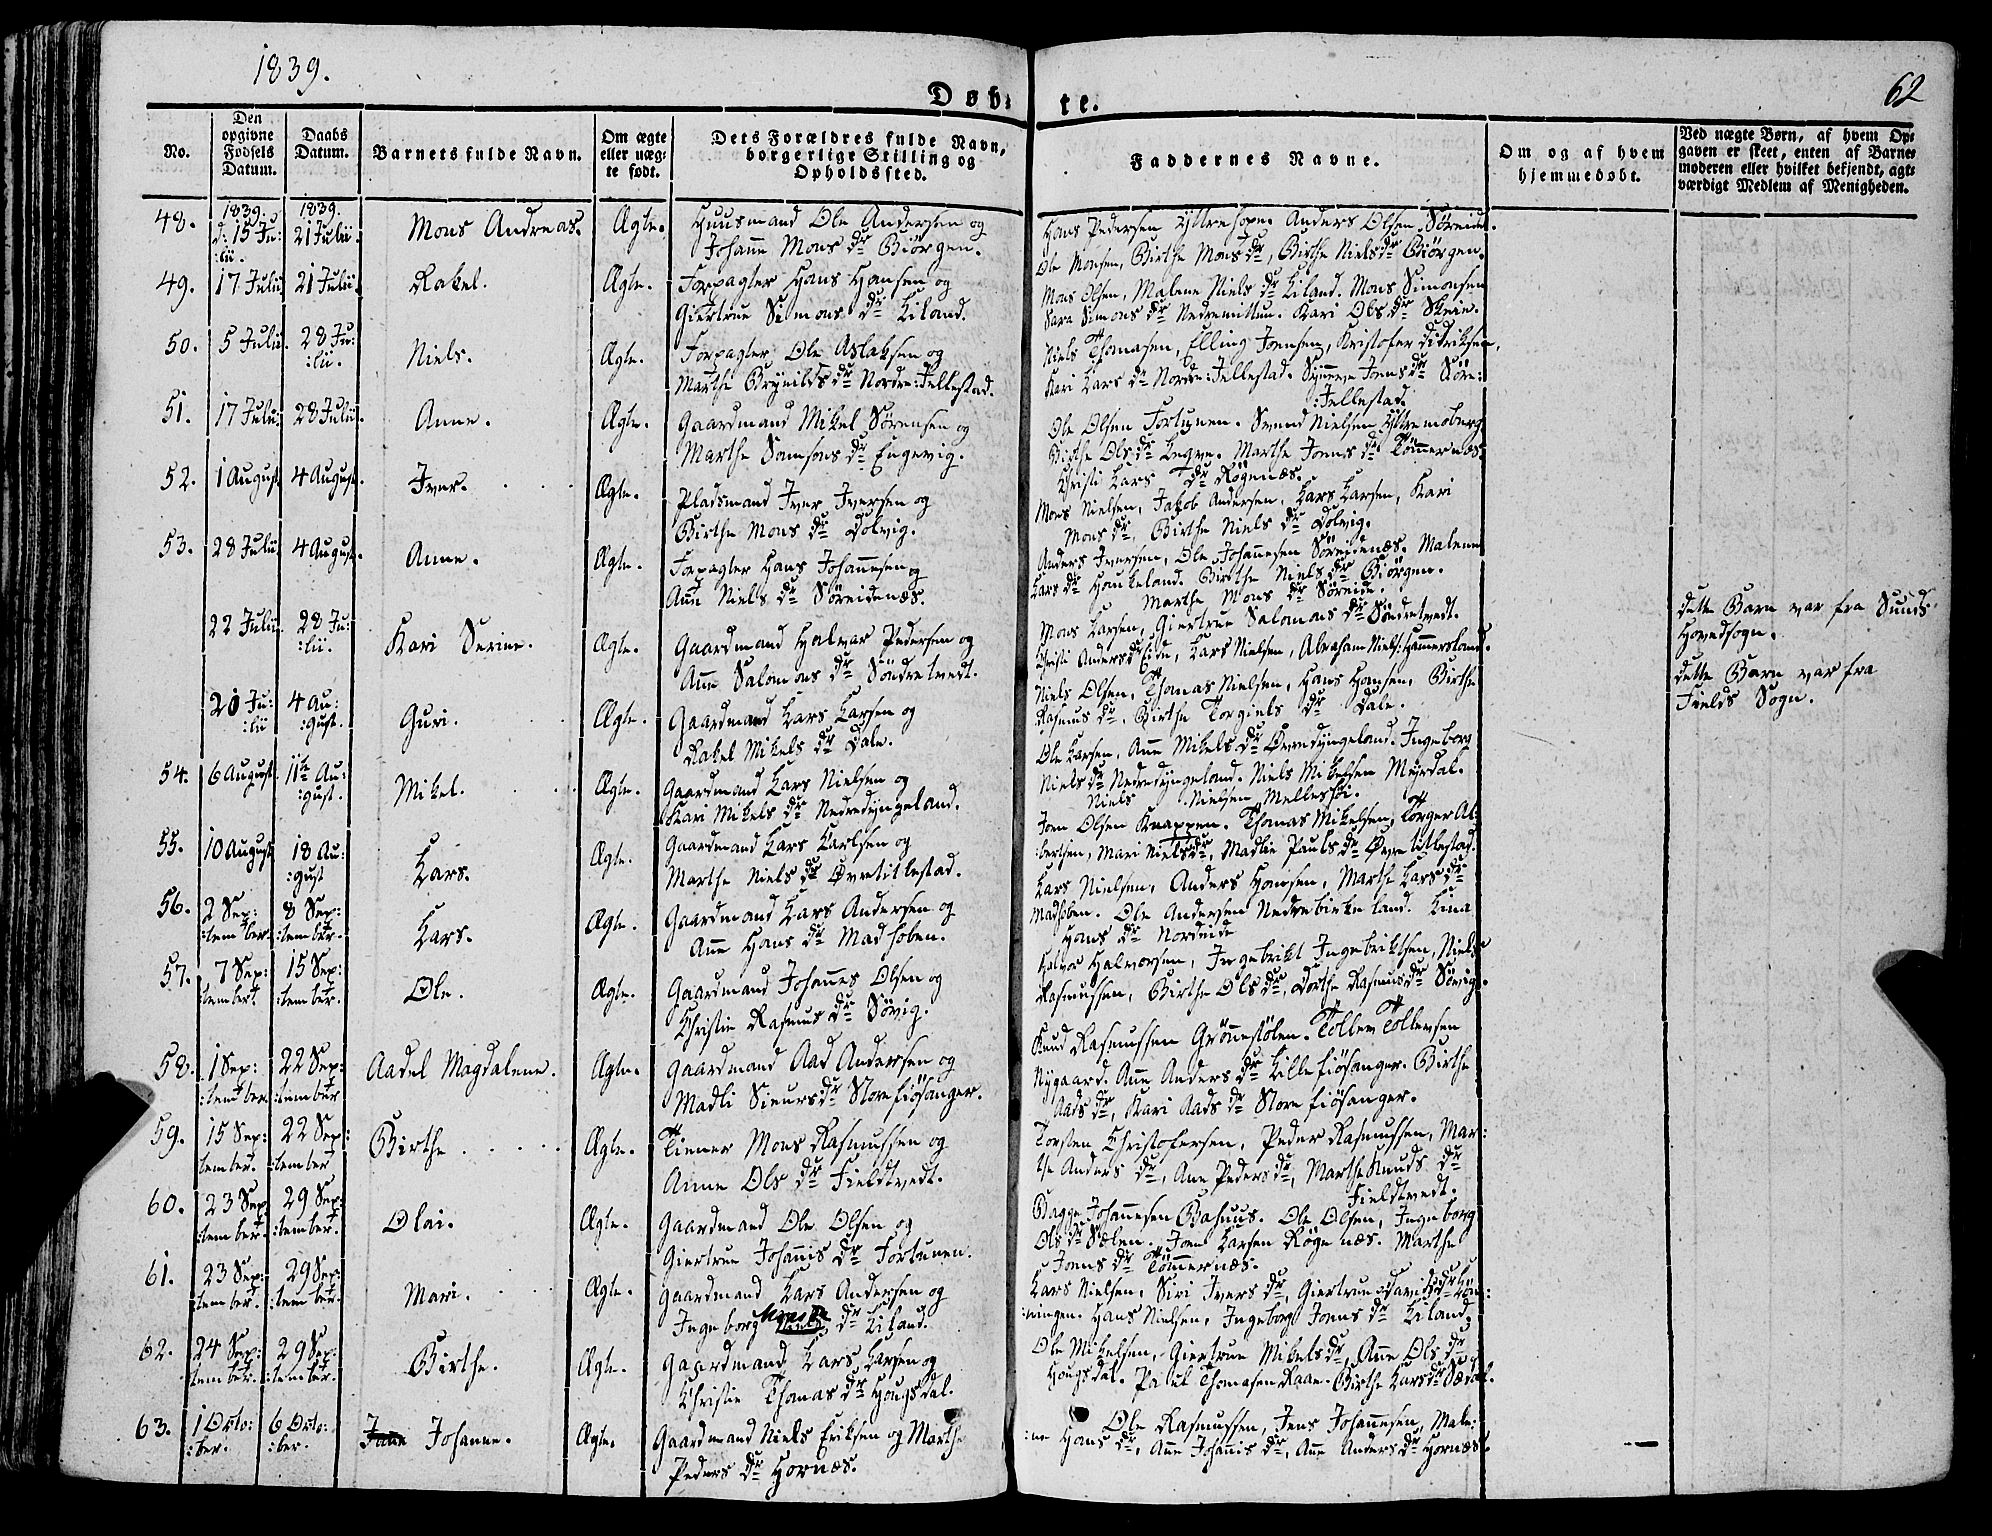 1839.
Døb-
te.
62
No.
Den opgivne Fødsels Datum.
Daabs Datum.
Barnets fulde Navn.
Om ægte eller uæg-te født.
Dets Forældres fulde Navn, borgerlige Stilling og Opholdssted.
Faddernes Navne.
Om og af hvem hjemmedøbt.
Ved uægte Børn, af hvem Op-gaven er skeet, enten af Barne-moderen eller hvilket bekjendt, agt-værdigt Medlem af Menigheden.
48. 1839. d: 15 Ju: :lii. 1839. 21 Julii. Mons Andreas. Ægte. Huusmand Ole Andersen og
Johane Mons dr Biörgen.
Hans Pedersen Yttrehope. Anders Olsen Söreide.
Ole Monsen, Birthe Mons dr, Birthe Niels dr Biörgen.
49. 17 Julii 21 Julii. Rakel. Ægte. Forpagter Hans Hansen og
Giertrue Simons dr Liland.
Mons Olsen, Malene Niels dr Liland. Mons Simonsen
Sara Simons dr Nedremittun. Kari Ols dr Skeie.
50. 5 Julii. 28 Ju: :lii. Niels. Ægte. Forpagter Ole Aslaksen og
Marthe Brynilds dr Nordre:Jellestad.
Niels Thomasen, Elling Joensen, Kristofer Didriksen,
Kari Lars dr Nordre:Jellestad. Synneve Joens dr Söre:
:Jellestad.
51. 17 Julii. 28 Julii. Anne. Ægte. Gaardmand Mikel Sörensen og
Marthe Samsons dr Engevig.
Ole Olsen Fortunen. Svend Nielsen Yttremoberg
Birthe Ols dr Legve. Marthe Joens dr Tömmernæs.
Christi Lars dr Rögenæs.
52. 1 August 4 August. Iver. Ægte. Pladsmand Iver Iversen og
Birthe Mons dr Dolvig.
Mons Nielsen, Jakob Andersen, Lars Larsen, Kari
Mons dr, Birthe Niels dr Dolvig.
53. 28 Julii 4 August. Anne. Ægte. Forpagter Hans Johannesen og
Anne Niels dr Söreidenæs.
Anders Iversen, Ole Johannesen Söreidenæs. Malene
Lars dr Haukeland. Birthe Niels dr Biörgen.
Marthe Mons dr Söreide.
22 Julii. 28 Ju: :lii. Kari Serine. Ægte. Gaardmand Halvar Pedersen og
Anne Salomons dr Söndretvedt.
Mons Larsen, Giertrue Salomons dr Söndretvedt.
Christi Anders dr Eide, Lars Nielsen, Abraham Niels: Hammersland.
dette Barn var fra Sunds
Hovedsogn.
20 Ju: :lii 4 Au: :gust. Guri. Ægte. Gaardmand Lars Larsen og
Rakel Mikels dr Dale.
Niels Olsen, Thomas Nielsen, Hans Hansen, Birthe
Rasmus dr, Birthe Torgiels dr Dale.
dette Barn var fra
Fields Sogn.
54. 6 August. 11te Au: :gust. Mikel. Ægte. Gaardmand Lars Nielsen og
Kari Mikels dr Nedredyngeland.
Ole Larsen, Anne Mikels dr Øvredyngeland. Ingeborg
Niels dr Nedredyngeland. Niels Mikelsen Myrdal.
Niels Nielsen Mellesköi.
55. 10 August 18 Au: :gust Lars. Ægte. Gaardmand Lars Karlsen og
Marthe Niels dr Øvretitlestad.
Joen Olsen Knappen. Thomas Mikelsen, Torger Al-
:bertsen, Mari Niels dr, Madlie Pauls dr Øvre titlestad.
56. 2 Sep: :tember. 8 Sep: :tember. Lars. Ægte. Gaardmand Lars Andersen og
Anne Hans dr Madhoben.
Lars Nielsen, Anders Hansen, Marthe Lars dr
Madhoben. Ole Andersen Nedrebirkeland. Lina
Hans dr Nordeide
57. 7 Sep: :tember. 15 Sep: :tember. Ole. Ægte. Gaardmand Johannes Olsen og
Christie Rasmus dr Sövig.
Halvor Halvorsen, Ingebrikt Ingebriktsen, Niels
Rasmussen, Birthe Ols dr, Dorthe Rasmus dr Sövig.
58. 1 Sep: :tember 22 Sep: :tember Aadel Magdalene. Ægte. Gaardmand Aad Andersen og
Madli Sieurs dr Store fiösanger.
Knud Rasmussen Grönnestölen. Tollev Tollevsen
Nygaard. Anne Anders dr Lille fiösanger. Birthe
Aads dr, Kari Aads dr Store fiösanger.
59. 15 Sep: tember. 22 Sep: :tember Birthe. Ægte. Tiener Mons Rasmussen og
Anne Ols dr Fieldtvedt.
Torsten Christofersen, Peder Rasmussen, Mar:
the Anders dr, Ane Peders dr, Marthe Knuds dr
Fieldtvedt.
60. 23 Sep :tember. 29 Sep: :tember. Olai. Ægte. Gaardmand Ole Olsen og
Giertrue Johannis dr Fortunen.
Bagge Johannesen Bahuus. Ole Olsen, Ingeborg
Ols dr Sælen. Joen Larsen Rögenæs. Marthe
Joens dr Tömmernæs.
61. 23 Sep: :tember. 29 Sep: :tember. Mari. Ægte. Gaardmand Lars Andersen og
Ingeborg dr Liland.
Lars Nielsen, Siri Ivers dr, Giertrue Davids dr Lön:
:ningen. Hans Nielsen, Ingeborg Joens dr Liland.
62. 24 Sep: tember. 29 Sep: :tember. Birthe. Ægte. Gaardmand Lars Larsen og
Christie Thomas dr Hougsdal.
Ole Mikelsen, Giertrue Mikels dr, Anne Ols dr
Hougsdal. Paul Thomasen Raae. Birthe Lars dr Sædal.
63. 1 Octo: :ber. 6 Octo: :ber. Jane Johanne. Ægte. Gaardmand Niels Eriksen og Marthe
Peders dr Hornæs.
Ole Rasmussen, Jens Johannesen, Male:
:ne Hans dr, Anne Johannis dr, Anne Anders dr Hornæs.